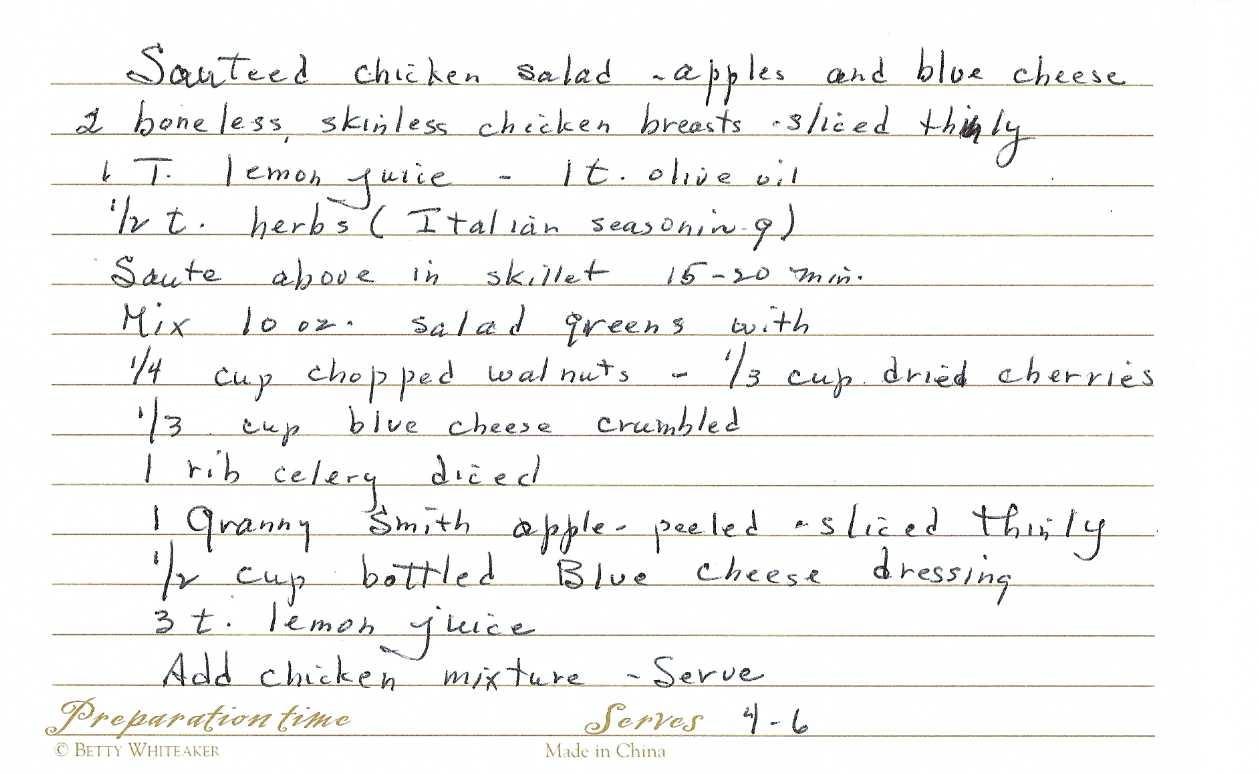 Sauteed chicken salad - apples and blue cheese
2 boneless, skinless chicken breasts - sliced thinly
1 T. lemon juice - 1 t. olive oil
1/2 t. herbs (Italian seasoning)
Saute above in skillet 15-20 min.
Mix 10 oz. salad greens with
1/4 cup chopped walnuts - 1/3 cup dried cherries
1/3 cup blue cheese crumbled
1 rib celery diced
1 Granny Smith apple - peeled - sliced thinly
1/2 cup bottled Blue cheese dressing
3 t. lemon juice
Add chicken mixture - Serve
Preparation time Serves 4-6
© BETTY WHITEAKER Made in China